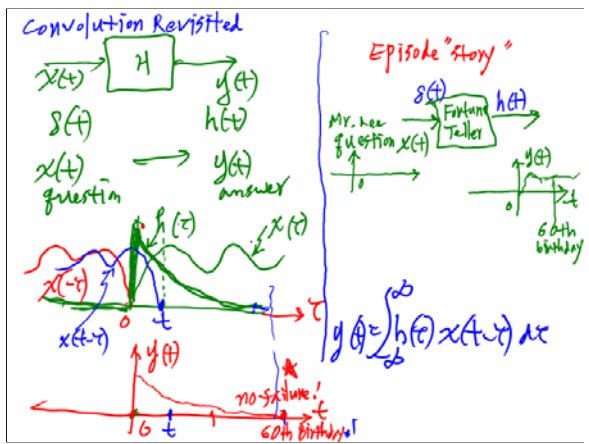 Convolution Revisited
x(t) H y(t)
δ(t) h(t)
x(t) y(t)
question answer
h(τ) x(τ)
x(-τ)
x(t-τ)
0 t τ
y(t)
no-failure!
0 t t
60th Birthday!
Episode "story"
δ(t) h(t)
Mr. Lee
question x(t)
Fortune
Teller
0
y(t)
0 t
60th
birthday
y(t)=∫_{-∞}^{∞} h(τ) x(t-τ) dτ